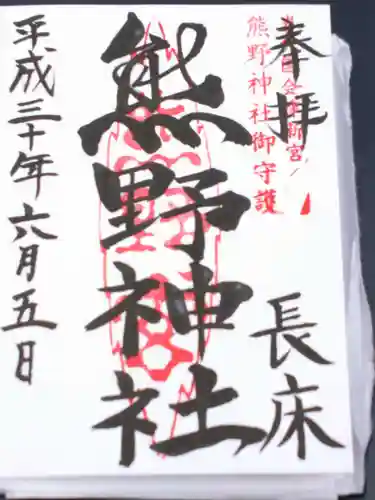 奉拝
長床
熊野神社御守護
熊野神社
平成三十年六月五日